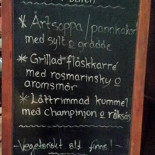 * Ärtsoppa / pannkakor
med sylt o grädde
* Grillad fläskkarré
med rosmarinsky o
aromsmör
* Lättrimmad kummel
med champinjon o räksås
- Vegetariskt alt finns! -